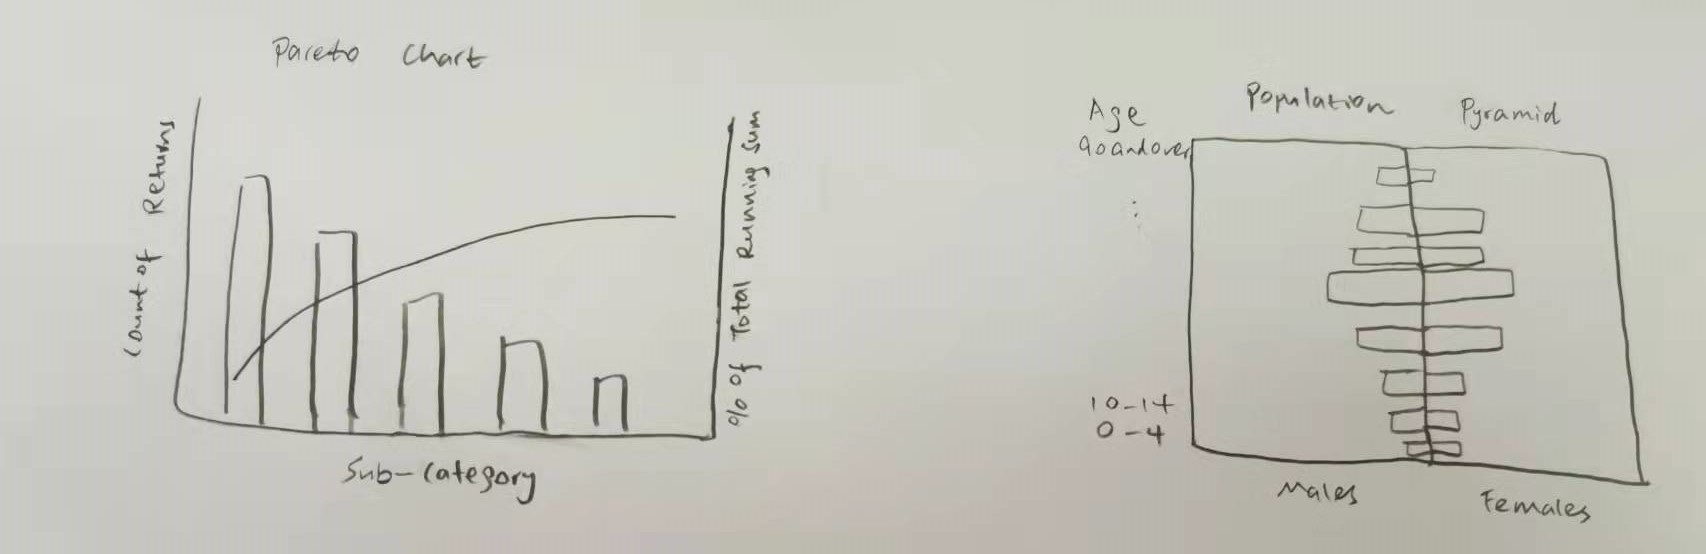 Pareto Chart
Count of Returns
% of Total Running Sum
Sub-Category
Population Pyramid
Age
90andover
10-14
0-4
Males
Females